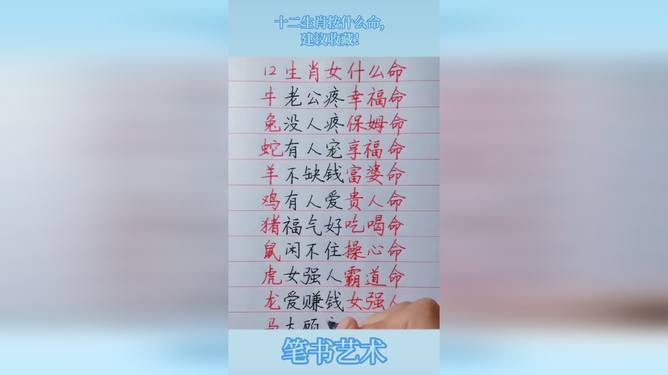 十二生肖按什么命,
建议收藏!
12生肖女什么命
牛老公疼幸福命
兔没人疼保姆命
蛇有人宠享福命
羊不缺钱富婆命
鸡有人爱贵人命
猪福气好吃喝命
鼠闲不住操心命
虎女强人霸道命
龙爱赚钱女强人
马大
笔书艺术